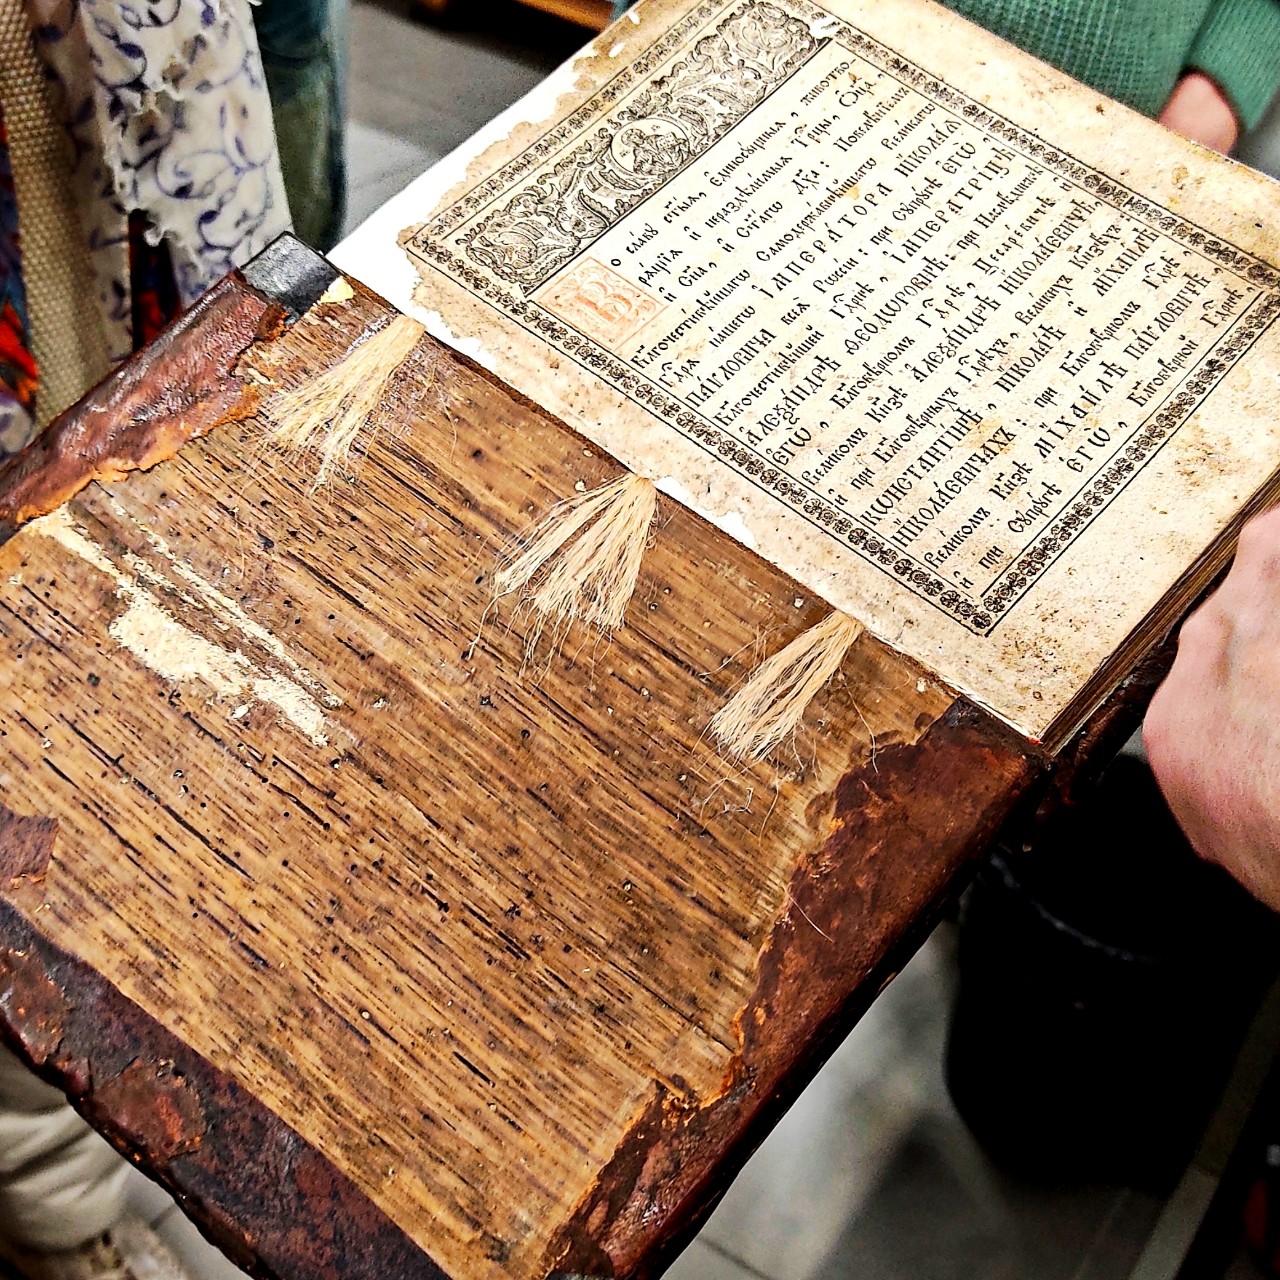 Во славꙋ ст҃ыѧ, є҆диносꙋщныѧ, животво-
рѧщїѧ и҆ нераздѣлимыѧ Трⷪ҇цы, Ѻ҆ц҃а̀,
и҆ Сн҃а, и҆ Ст҃а́гѡ Дх҃а: Повелѣнїемъ
Бл҃гочестивѣйшагѡ Самодержавнѣйшагѡ Великагѡ
Гдⷭ҇рѧ нашегѡ ІМПЕРАТОРА НІКОЛАА
ПАѴЛОВИЧА всеѧ̀ Россїи: при Сꙋпрꙋгѣ Є҆ГѠ̀
Бл҃гочестивѣйшей Гдⷭ҇рнѣ, ІМПЕРАТРИЦѢ
АЛЕѮАНДРѢ ѲЕОДѠРОВНѢ: при Наслѣдникѣ
Є҆ГѠ̀, Бл҃говѣрномъ Гдⷭ҇рѣ, Цесаревичѣ и҆
Великомъ Кн҃зѣ АЛЕѮАНДРѢ НІКОЛАЕВИЧѢ
и҆ при Бл҃говѣрныхъ Гдⷭ҇рѣхъ, Великихъ Кн҃зѣхъ
КѠНСТАНТІНѢ, НІКОЛАѢ и҆ МІХАИЛѢ
НІКОЛАЕВИЧАХЪ: при Бл҃говѣрномъ Гдⷭ҇рѣ,
Великомъ Кн҃зѣ МІХАИЛѢ ПАѴЛОВИЧѢ,
и҆ при Сꙋпрꙋгѣ Є҆ГѠ̀, Бл҃говѣрной Гдⷭ҇рнѣ